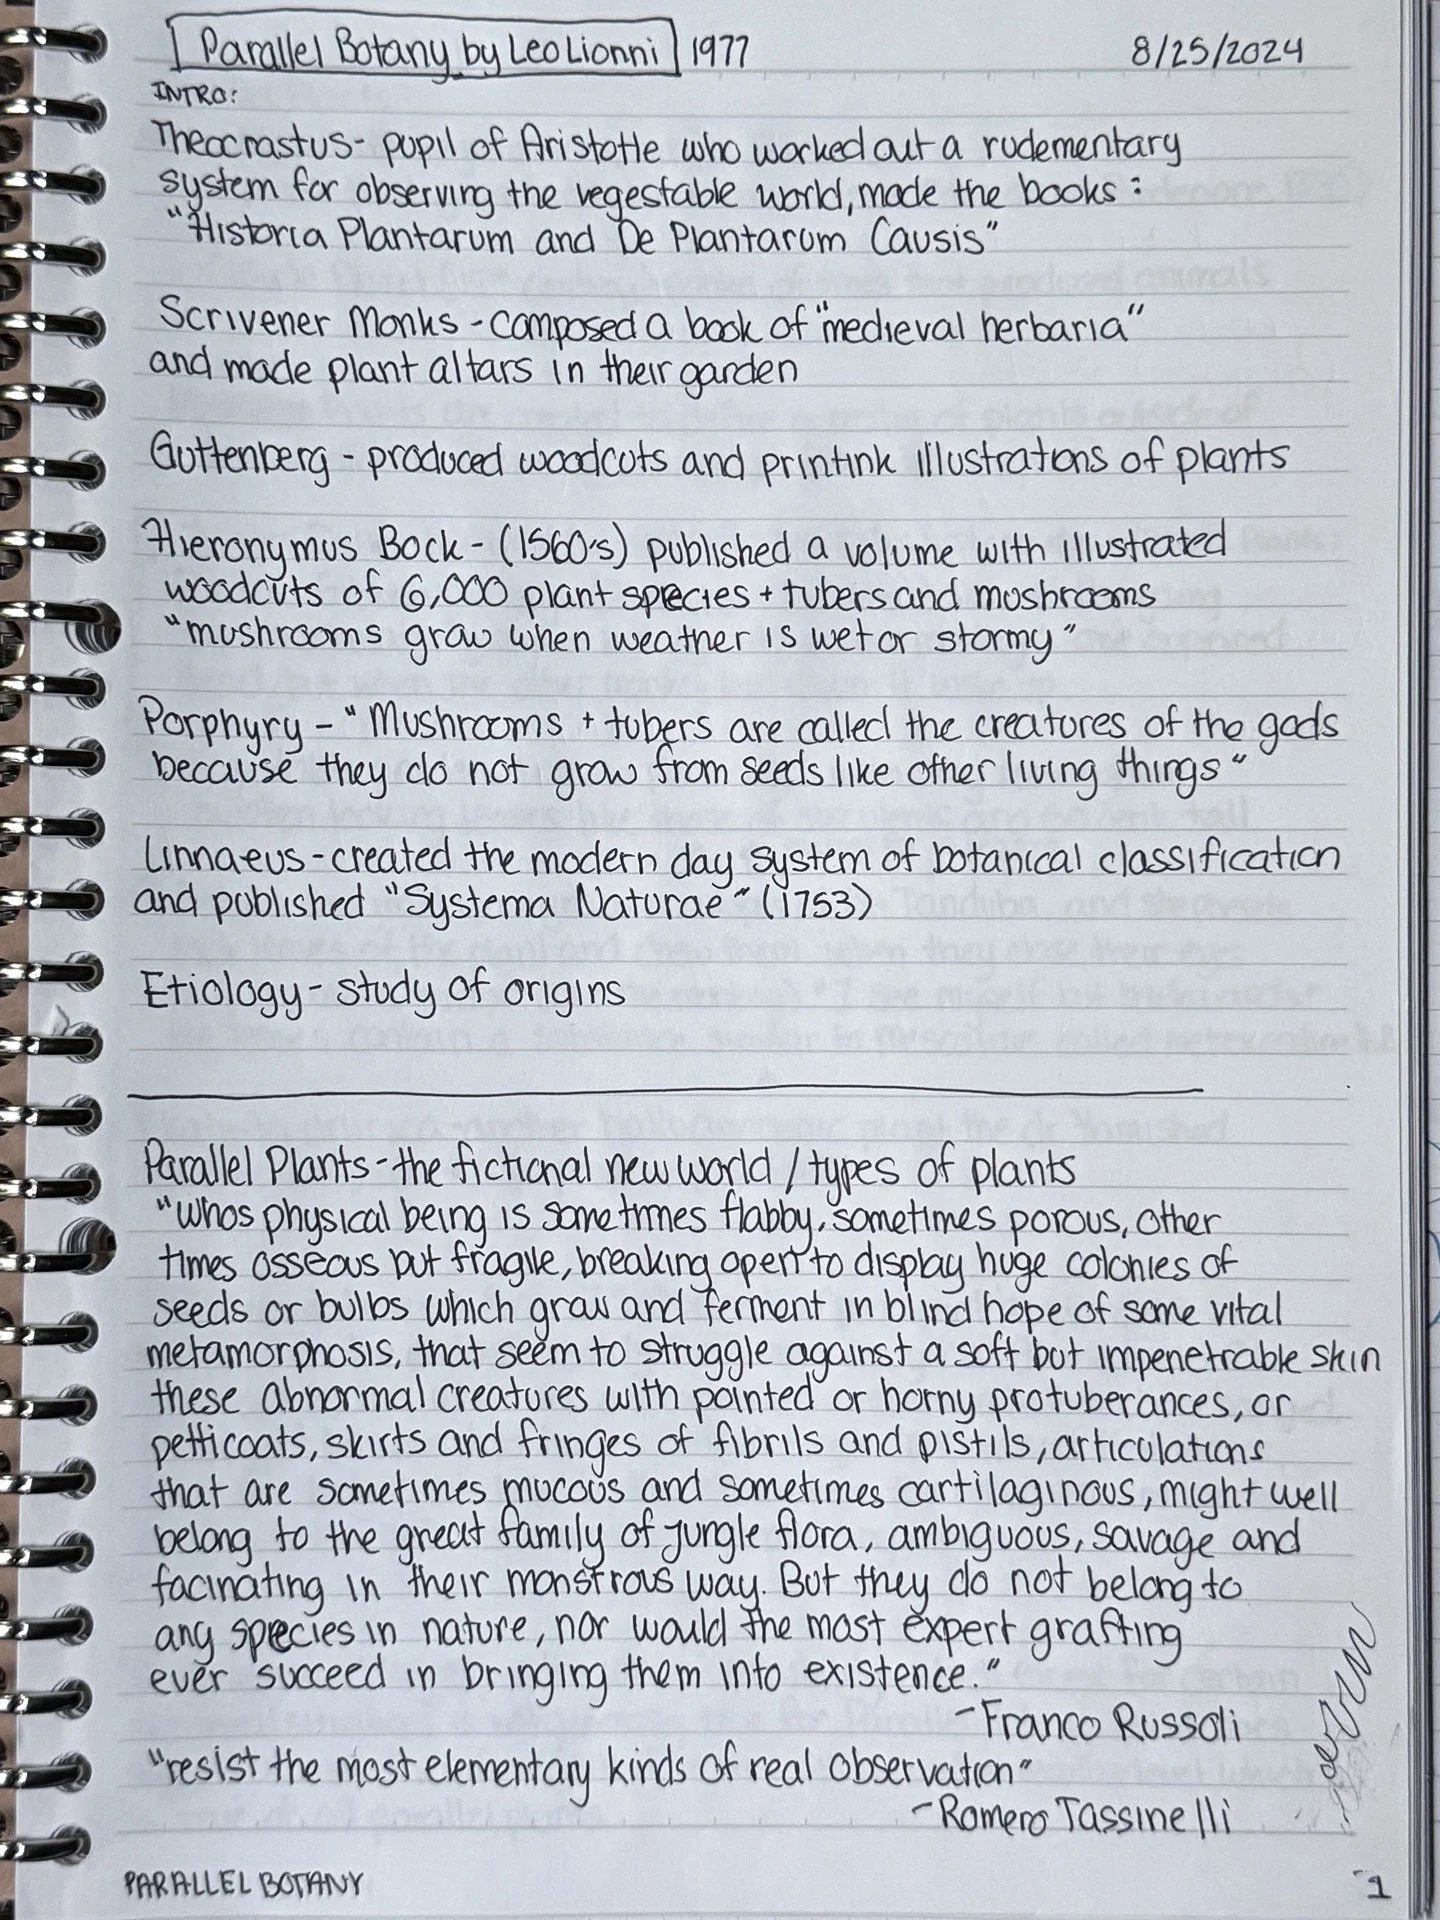 Parallel Botany by Leo Lionni 1977 8/25/2024
INTRO:
Theocrastus - pupil of Aristotle who worked out a rudementary
system for observing the vegestable world, made the books:
"Historia Plantarum and De Plantarum Causis"
Scrivener Monks - composed a book of "medieval herbaria"
and made plant altars in their garden
Guttenberg - produced woodcuts and printink illustrations of plants
Hieronymus Bock - (1560's) published a volume with illustrated
woodcuts of 6,000 plant species + tubers and mushrooms
"mushrooms grow when weather is wet or stormy"
Porphyry - "Mushrooms + tubers are called the creatures of the gods
because they do not grow from seeds like other living things"
Linnaeus - created the modern day system of botanical classification
and published "Systema Naturae" (1753)
Etiology - study of origins
Parallel Plants - the fictional new world / types of plants
"whos physical being is sometimes flabby, sometimes porous, other
times osseous but fragile, breaking open to display huge colonies of
seeds or bulbs which grow and ferment in blind hope of some vital
metamorphosis, that seem to struggle against a soft but impenetrable skin
these abnormal creatures with pointed or horny protuberances, or
petticoats, skirts and fringes of fibrils and pistils, articulations
that are sometimes mucous and sometimes cartilaginous, might well
belong to the great family of jungle flora, ambiguous, savage and
facinating in their monstrous way. But they do not belong to
any species in nature, nor would the most expert grafting
ever succeed in bringing them into existence."
- Franco Russoli
"resist the most elementary kinds of real observation"
- Romero Tassinelli
PARALLEL BOTANY 1